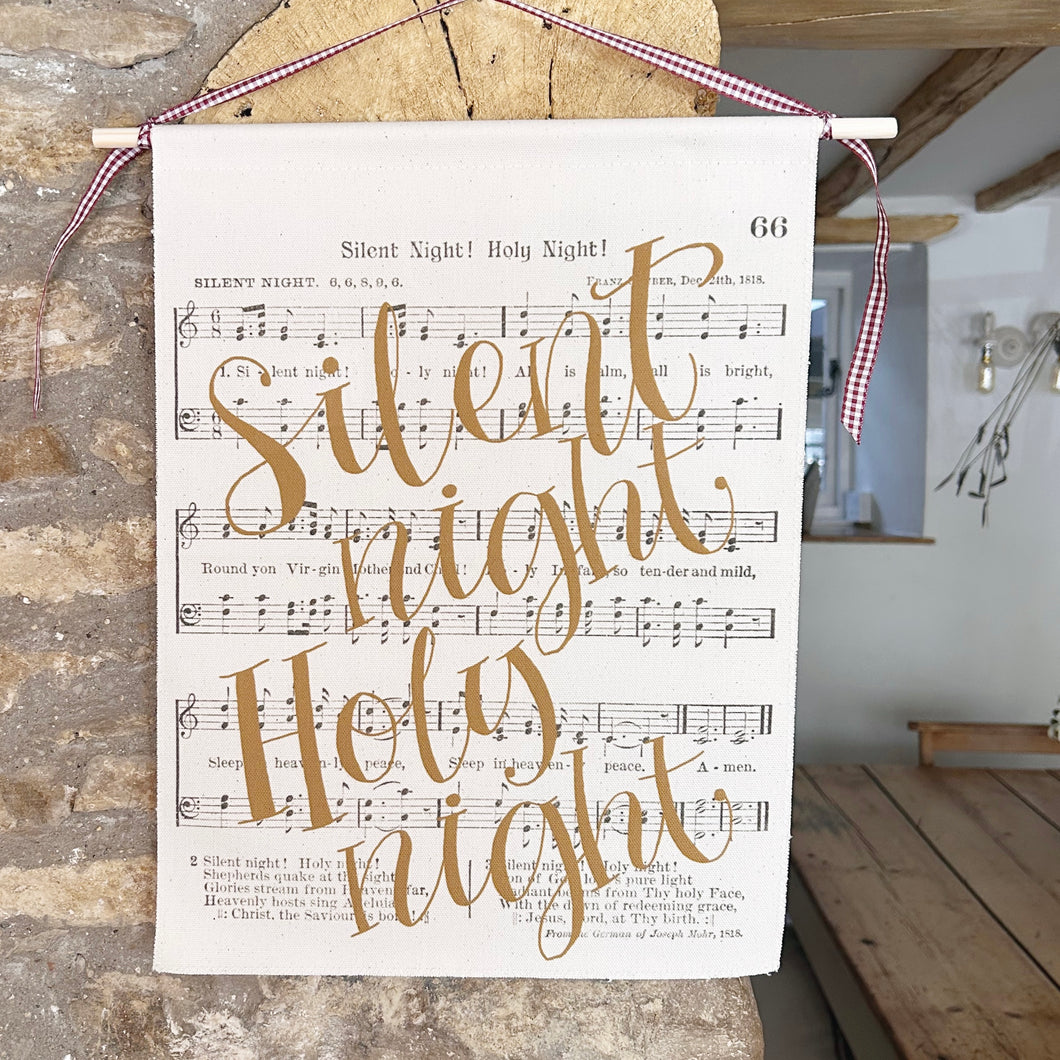 66
Silent Night! Holy Night!
SILENT NIGHT. 6, 6, 8, 9, 6.
FRANZ GRUBER, Dec. 24th, 1818.
1. Si - lent night! Ho - ly night! All is calm, all is bright,
Round yon Vir-gin Mother and Child! Ho - ly Infant, so ten-der and mild,
Sleep in heav-en-ly peace, Sleep in heav-en-ly peace. A - men.
Silent
night
Holy
night.
2 Silent night! Holy night!
Shepherds quake at the sight
Glories stream from Heaven afar,
Heavenly hosts sing Alleluia
‖: Christ, the Saviour is born! :‖
3 Silent night! Holy night!
Son of God love's pure light
Radiant beams from Thy holy Face,
With the dawn of redeeming grace,
‖: Jesus, Lord, at Thy birth. :‖
From the German of Joseph Mohr, 1818.